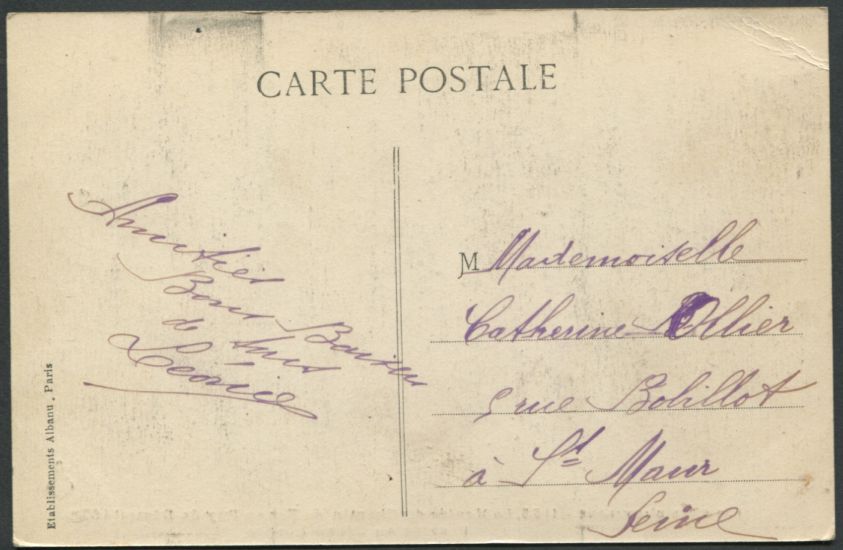 CARTE POSTALE
Amitiés
Bons Baisers
de tous
Léonie
M Mademoiselle
Catherine Ollier
5 rue Bobillot
à St Maur
Seine
Etablissements Albanu, Paris